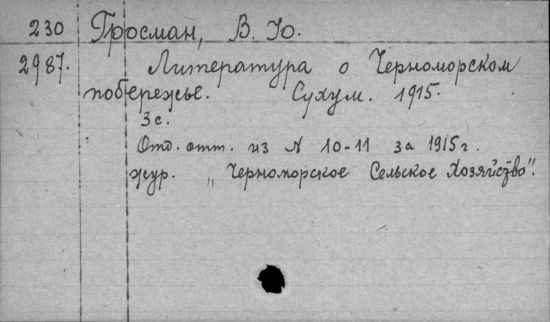 230 Гросман, В. Ю.
2987. Литература о Черноморском
побережье. Сухум. 1915.
3 с.
Отд. отт. из № 10-11 за 1915 г.
жур. „Черноморское Сельское Хозяйство".